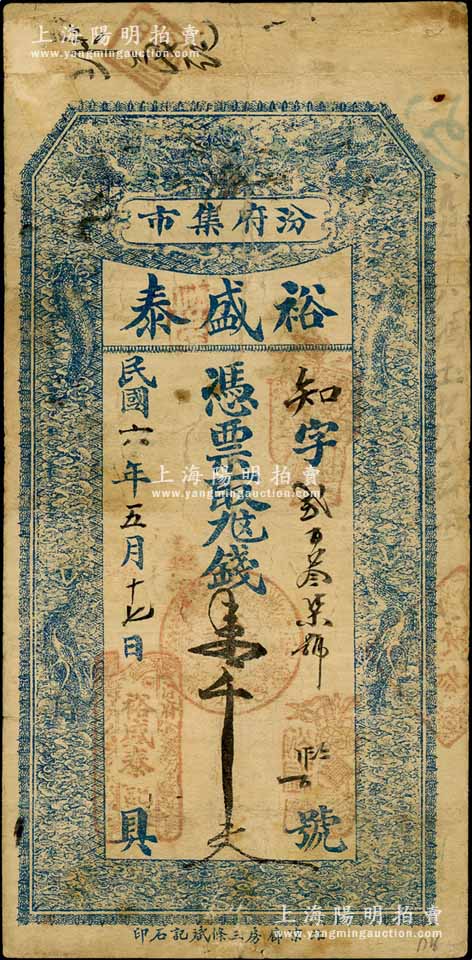 上海陽明拍賣
www.yangmingauction.com
市集府汾
泰盛裕
知字貳百叁柒號
號
憑票取九錢壹千文
民國六年五月十七日
具
上海陽明拍賣
www.yangmingauction.com
裕盛泰
印石記斌條三房廊
上海陽明拍賣
www.yangmingauction.com